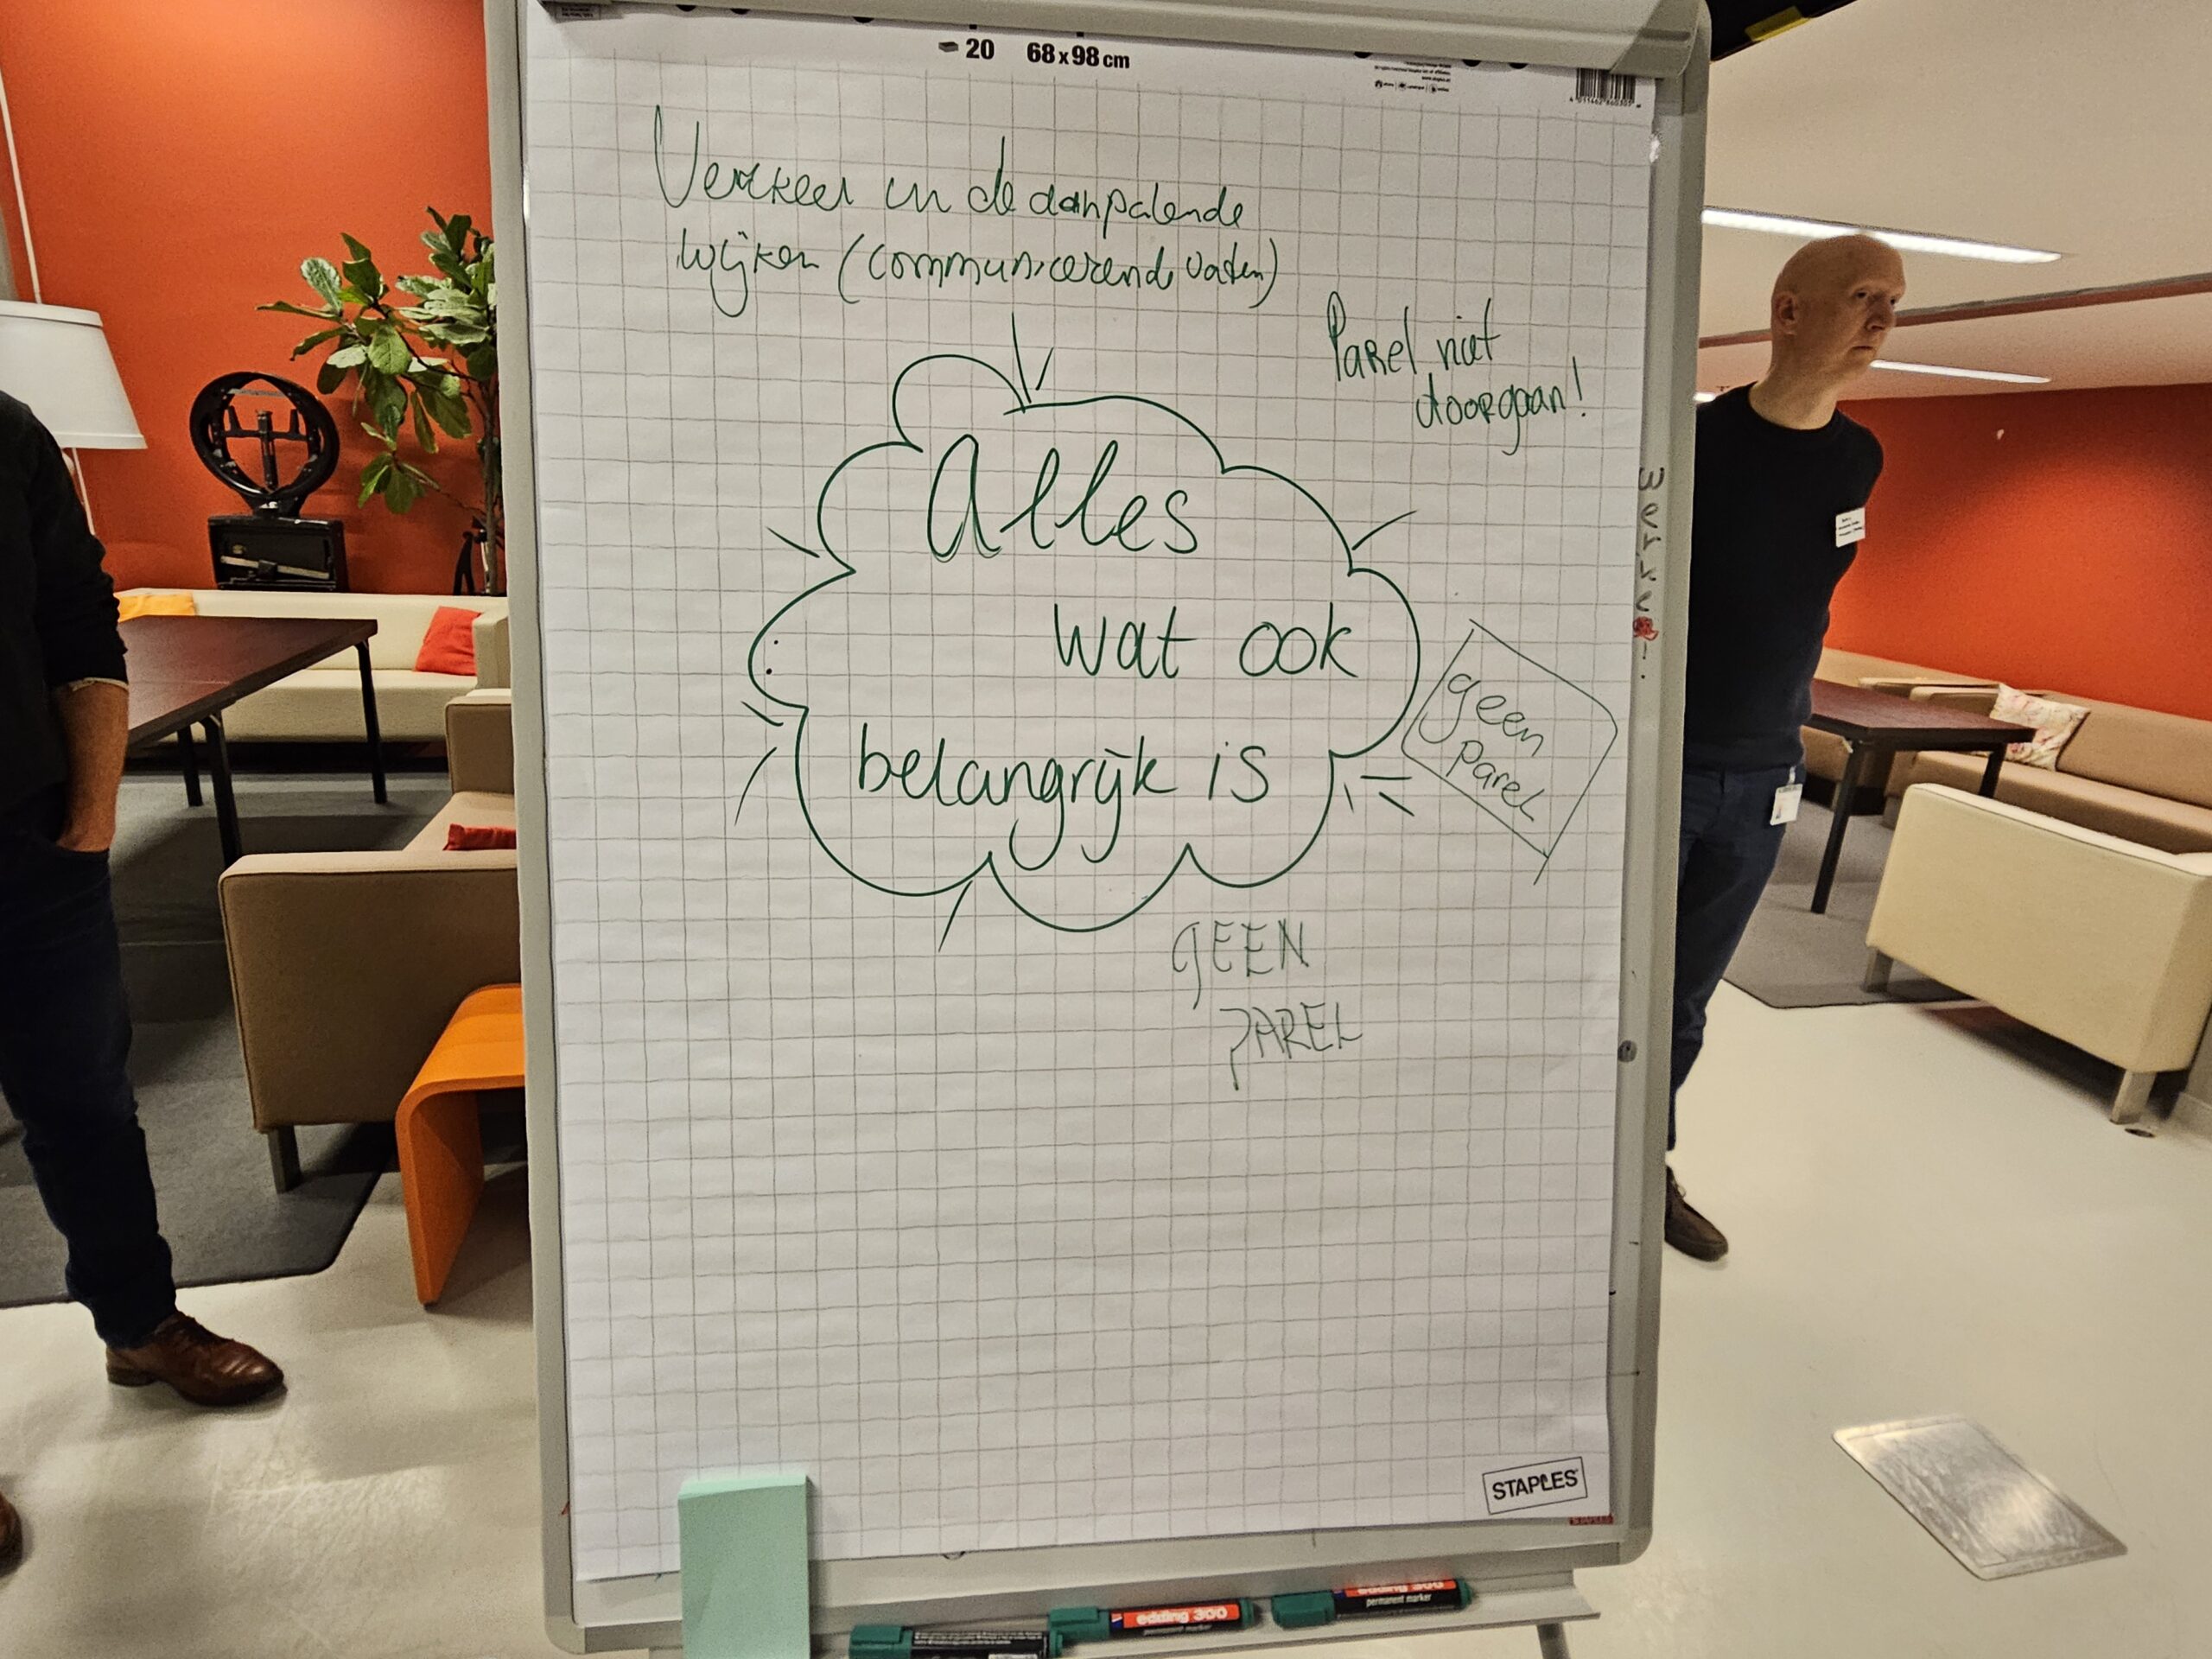 20 68 x 98 cm
Verkeer in de aanpalende
wijken (communicerende vaten)
Parel niet
doorgaan!
Alles
wat ook
belangrijk is
geen
parel
GEEN
PAREL
STAPLES
edding 300
permanent marker
edding 300
permanent marker